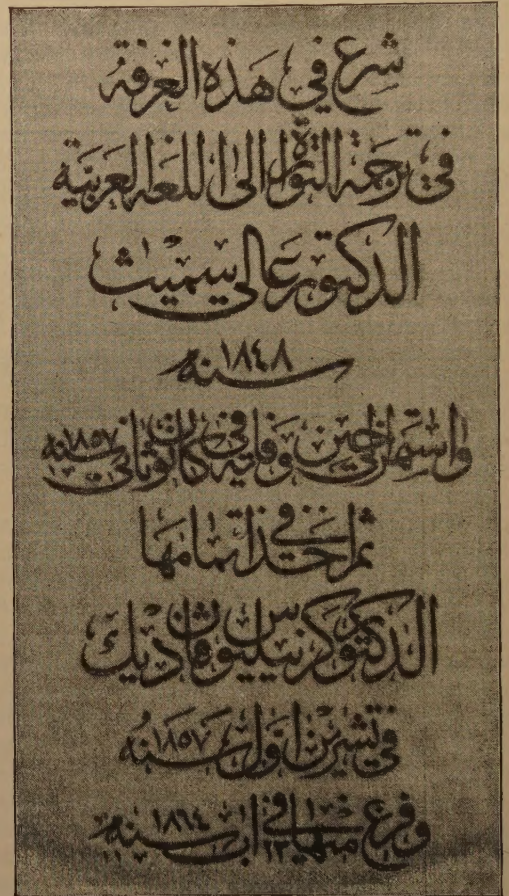 شرع في هذه الغرفة
في ترجمة التوراة الى اللغة العربية
الدكتور عالي سميث
سنة ١٨٤٨
واستمر الى حين وفاته في كانون ثاني سنة ١٨٥٧
ثم اخذ في اتمامها
الدكتور كرنيليوس فان ديك
في تشرين اول سنة ١٨٥٧
وفرغ منها في ٢٢ اب سنة ١٨٦٤